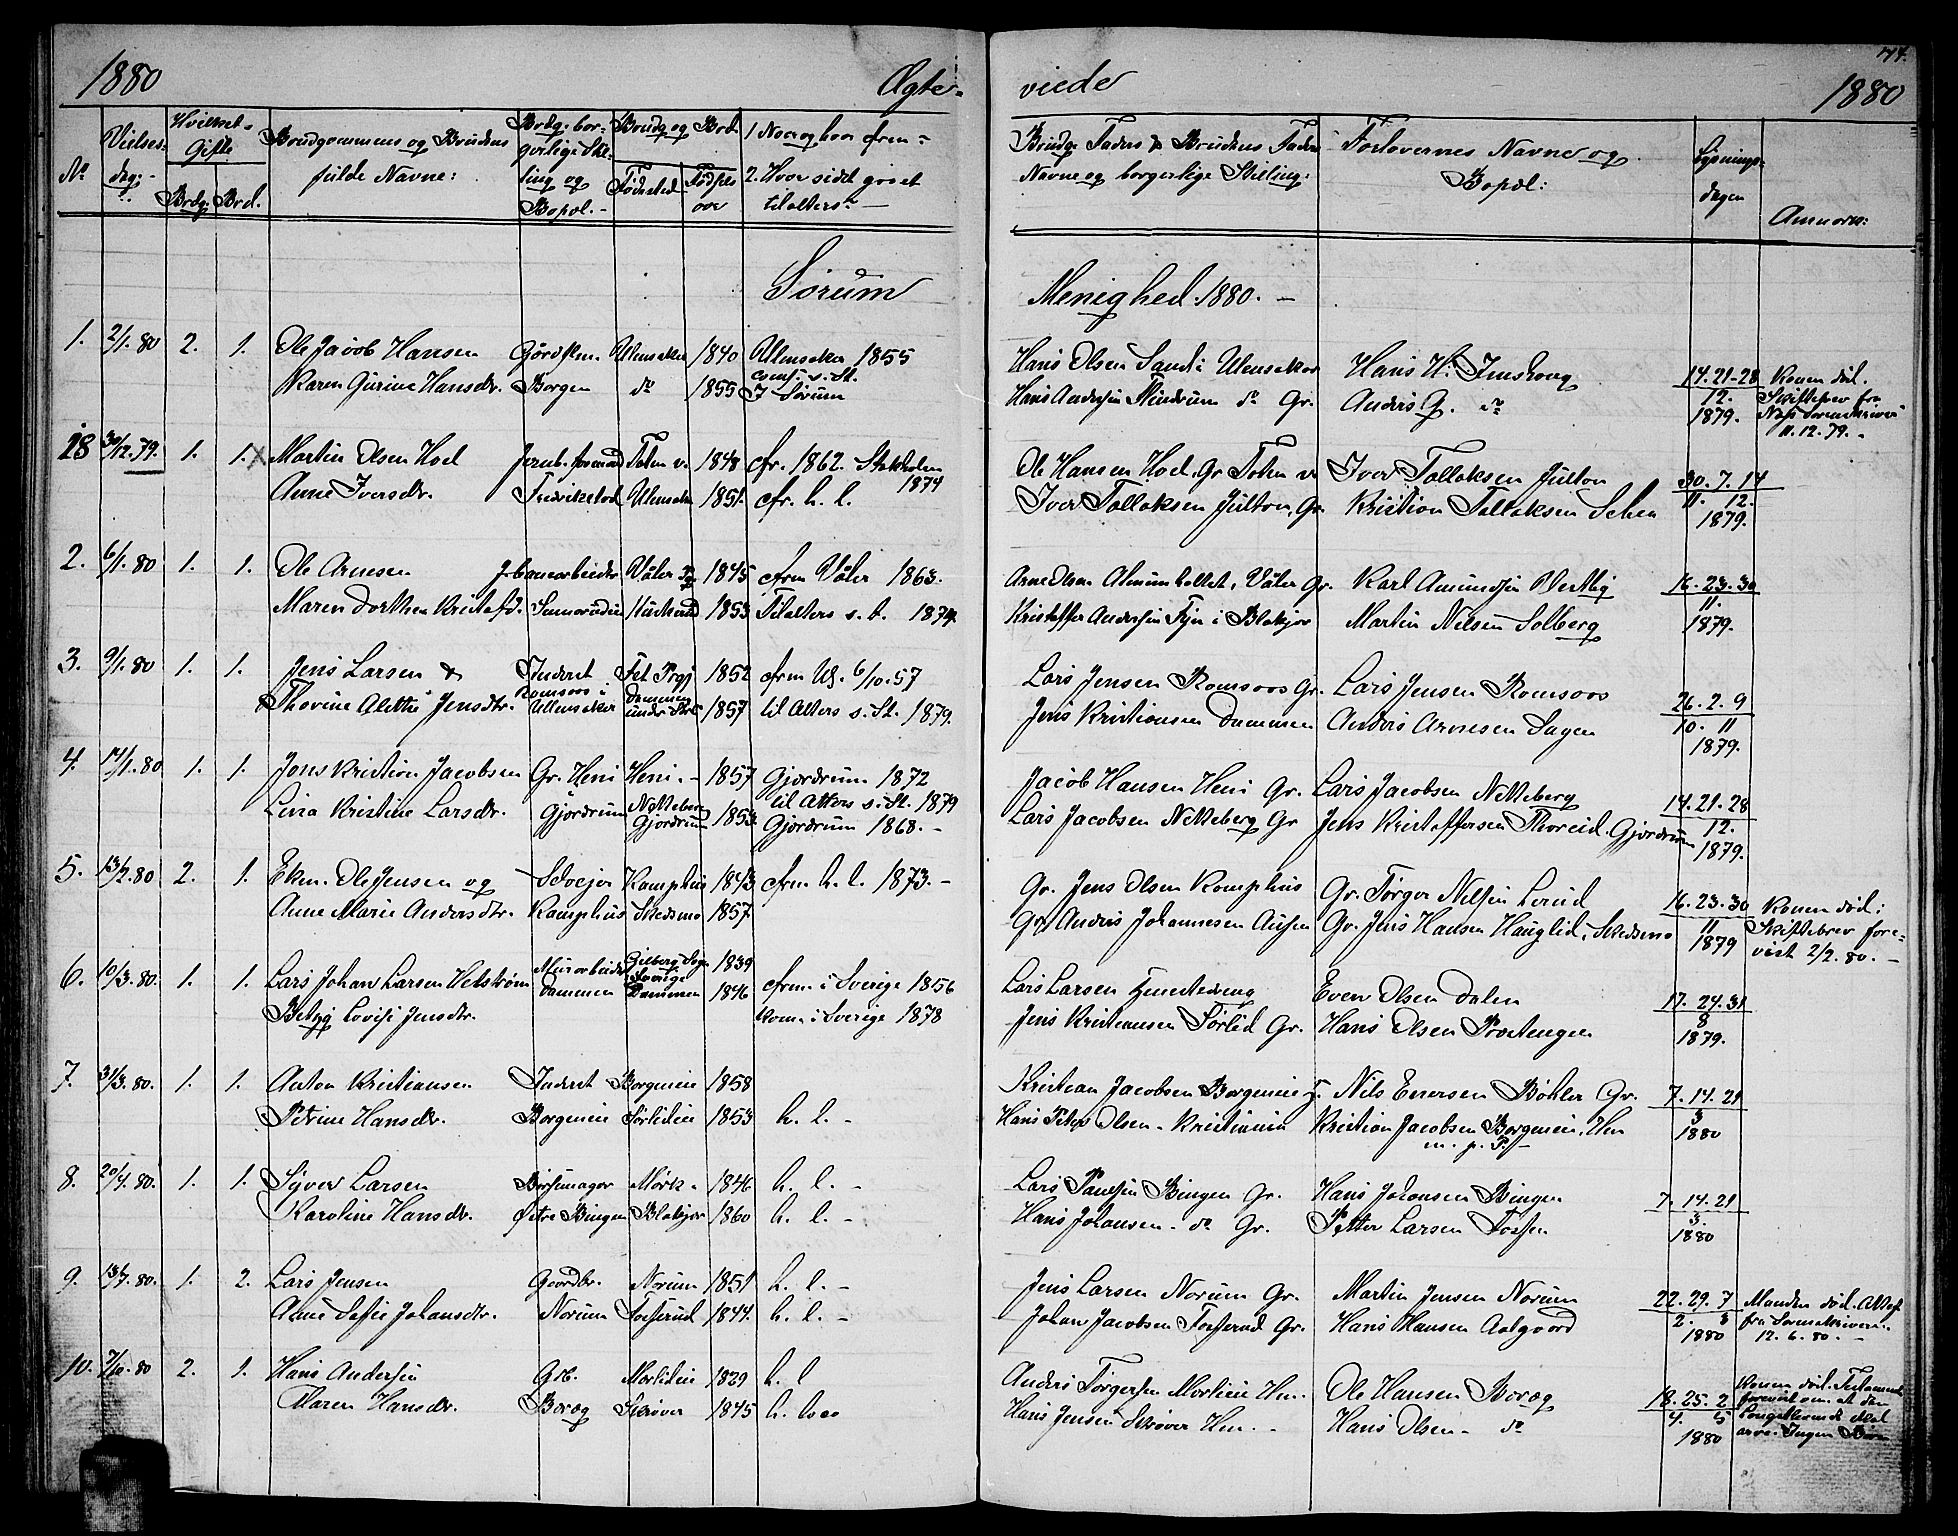 1880 Ægte- viede 1880
No Vielses- dag: Hvilket- Gifte. Brudgommens og Brudens fulde Navne: Brdg. borgerlige Stilling og Bopæl. Brudg. og Brd. Fødested Fødsels aar 1 Naar og hvor cfrm- 2. Hvor sidst gaaet til alters.
Brdg. Brd.
Brudg. Faders & Brudens Faders Navne og borgerlige Stilling: Forlovernes Navne og Bopæl: Lysnings- dagen Anmærkn:
Sørum Menighed 1880. -
1. 2/1. 80 2. 1. Ole Jacob Hansen Ullensaker 1840 Ullensaker 1855 Hans Olsen Sand i Ullensaker Hans H. 14. 21-28 Konen død.
Karen Gurine Hansdr. Borgen do 1855 Sørum Hans Andersen do Gr. Anders G. do 12. 1879. Skiftebrev fra Næs Sorenskriveri 11. 12. 79. -
18 30/12. 79. 1. 1. X Martin Olsen Hoel Toten v. 1848 cfr. 1862. Stokholm 1874 Ole Hansen Hoel, Gr Toten v Iver Tollaksen Julton 30. 7. 14
Anne Iversdr. Fredrikstad Ullensaker 1851. cfr. h. l. Iver Tollaksen Julton, Gr. Kristian Tollaksen 11. 12. 1879.
2. 6/1. 80 1. 1. Ole Arnesen J. banearbeider Våler 1845 cfrm Våler 1863. Arne Olsen Våler Gr. Karl Amundsen Vestby 16. 23. 30
Maren Dorthea Kristofd. 1853 Til alters s. t. 1874. Kristoffer Andersen i Blakjer Martin Nilsen Solberg 11. 1879.
3. 9/1. 80 1. 1. Jens Larsen & Inderst Fet Prgj 1852 cfrm Us. 6/10. 57 Lars Jensen Romsaas Gr. Lars Jensen Romsaas 26. 2. 9
Thorine Alette Jensdtr. Romsaas i Ullensaker Dammen 1857 til Alters s. St. 1879. Jens Kristiansen Dammen Anders Arnesen Sagen 10. 11 1879.
4. 14/1. 80 1. 1. Jens Kristian Jacobsen Gr. Heni Heni. - 1857 Gjerdrum 1872 Jacob Hansen Heni Gr. Lars Jacobsen Nitteberg 14. 21. 28
Lina Kristine Larsdr. Gjerdrum Nitteberg Gjerdrum 1853 til Alters s. St. 1879 Gjerdrum 1868. - Lars Jacobsen Nitteberg Gr Jens Kristoffersen Gjerdrum 12. 1879.
5. 13/2. 80 2. 1. Ekm. Ole Jensen og Selvejer Kamphus 1843 cfrm h. l. 1873. - Gr. Jens Olsen Kamphus Gr. Torger Nilsen Lerud 16. 23. 30 Konen død:
Anne Marie Andersdtr. Kamphus Skedsmo 1857. Gr. Anders Johannesen Gr. Jens Hansen Hauglid, Skedsmo 11 1879 Skiftebrev fore- vist 2/2. 80. -
6. 10/3. 80. 1. 1. Lars Johan Larsen Murarbeider Sverige 1839 cfrm i Sverige 1856 Lars Larsen Even Olsen Dalen 17. 24. 31
Betzy Lovise Jensdtr. Dammen Dammen 1846 kom. i Sverige 1878 Jens Kristiansen Sørlid Gr. Hans Olsen Præstengen 8 1879.
7. 31/3. 80. 1. 1. Anton Kristiansen Inderst Borgeneie 1858 Kristian Jacobsen Borgeneie Nils Enersen Bøhler Gr. 7. 14. 21
Petrine Hansdr. Borgeneie Sørlideie 1853 h. l. - Hans Peter Olsen - Kristiania Kristian Jacobsen Borgeneie, Hm m. p. P. 3 1880
8. 20/4. 80. 1. 1. Syver Larsen Børsemager Mørk - 1846 h. l. - Lars Paulsen Bingen Gr. Hans Johansen Bingen 7. 14. 21
Karoline Hansdr. Østre Bingen Blakjer 1860 h. l. - Hans Johansen - do Gr. Petter Larsen 3. 1880
9. 13/7. 80. 1. 2. Lars Jensen Gaardbr. Norum 1851 h. l. - Jens Larsen Norum Gr. Martin Jensen Norum 22. 29. 7 Manden død. Attest
Anne Sofie Johansdtr. Norum Fosserud 1844. h. l. - Johan Jacobsen Fosserud Gr. Hans Hansen Aalgaard 2. 3 1880 fra Sorenskriveri. 12. 6. 80. -
10. 7/10. 80 2. 1. Hans Andersen Grb. Morlideie 1829 h. l Anders Torgersen Hm. Ole Hansen Boræg 18. 25. 2 Konen død. Testament
Maren Hansdr. Boræg Skrøver 1845 h. loco Hans Jensen Skrøver Hm. - Hans Olsen - do 4. 5 1880 forevist om at den Længstlevende skal arve. Ingen Børn